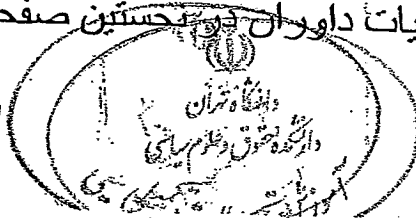 یات داوران در نخستین صفحه
دانشگاه تهران
دانشکده حقوق و علوم سیاسی